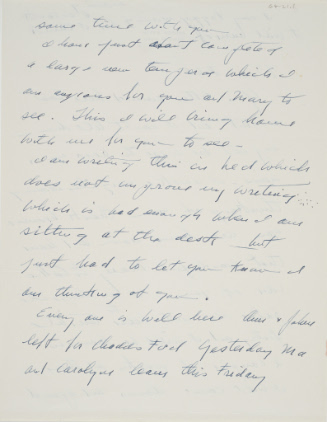 some time with you
I have just about completed
a large new tempera which I
am anxious for you and Mary to
see. This I will bring home
with me for you to see –
I am writing this in bed which
does not improve my writing
which is bad enough when I am
sitting at the desk but
just had to let you know I
am thinking of you.
Every one is well here Ann + John
left for Chadds Ford Yesterday
and Carolyn leave this Friday